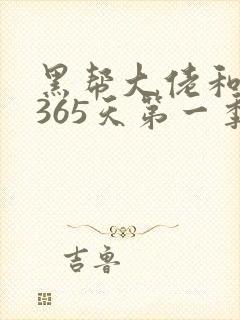 黑帮大佬和
365天第一季
吉鲁